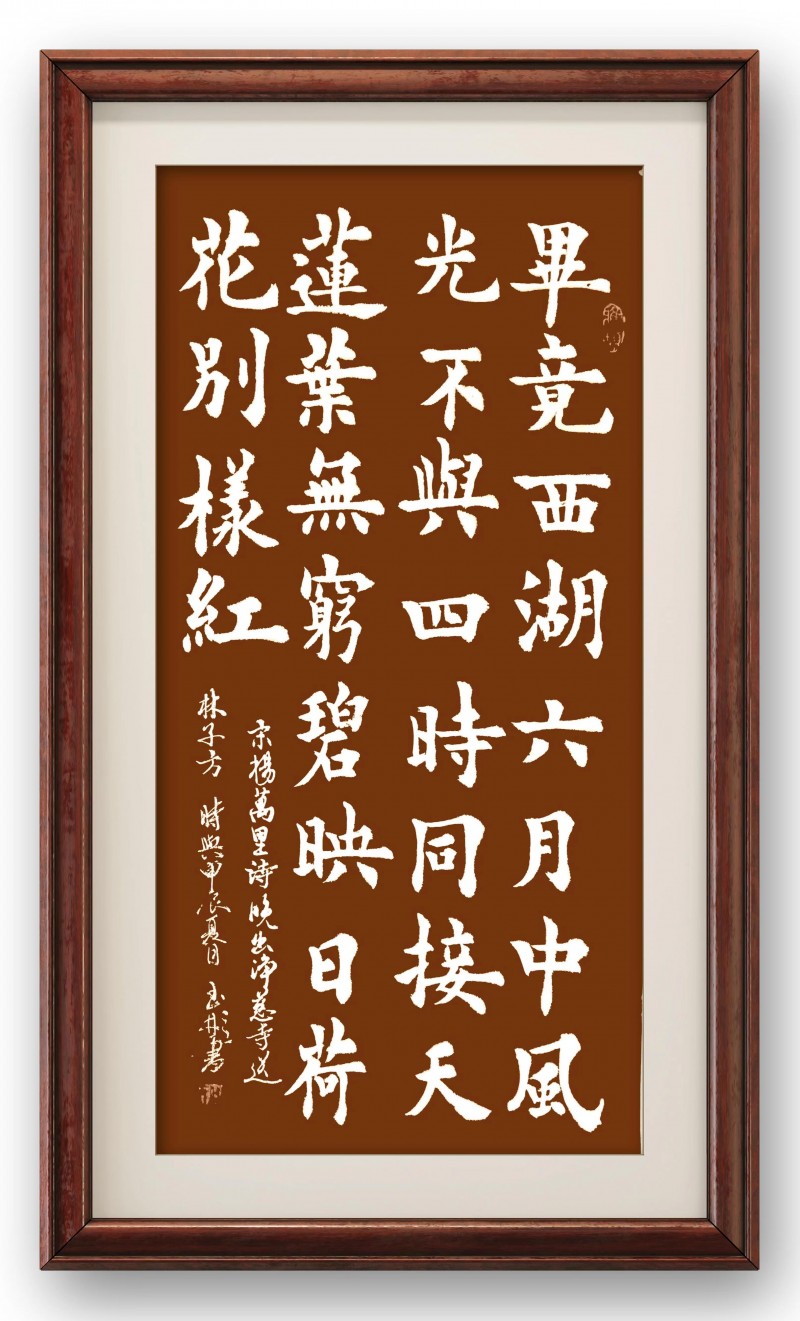 畢竟西湖六月中風
光不與四時同接天
蓮葉無窮碧映日荷
花別樣紅
宗楊萬里詩曉出淨慈寺送
林子方 時與甲辰夏月 書